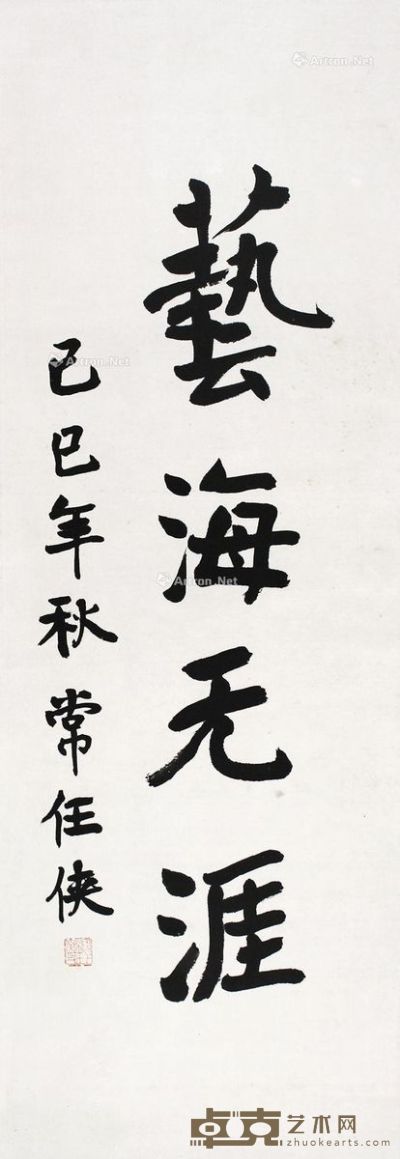 藝海无涯
己巳年秋 常任侠
Artron.Net
Artron.Net
Artron.Net
卓克艺术网
zhuokearts.com